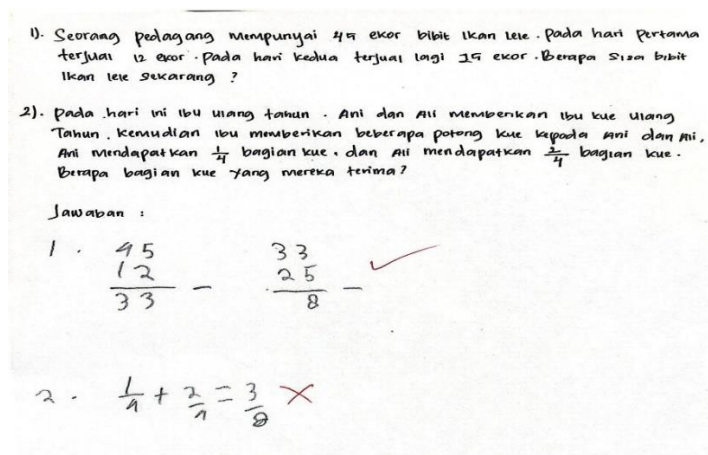 1). Seorang pedagang mempunyai 45 ekor bibit ikan lele. Pada hari pertama
terjual 12 ekor. Pada hari kedua terjual lagi 25 ekor. Berapa sisa bibit
ikan lele sekarang ?
2). Pada hari ini ibu ulang tahun. Ani dan Ali memberikan ibu kue ulang
Tahun. Kemudian ibu memberikan beberapa potong kue kepada Ani dan Ali.
Ani mendapatkan 1/4 bagian kue. dan Ali mendapatkan 2/4 bagian kue.
Berapa bagian kue yang mereka terima?
Jawaban :
1. 45 33
12 25
33 - 8 -
2. 1/4 + 2/4 = 3/8